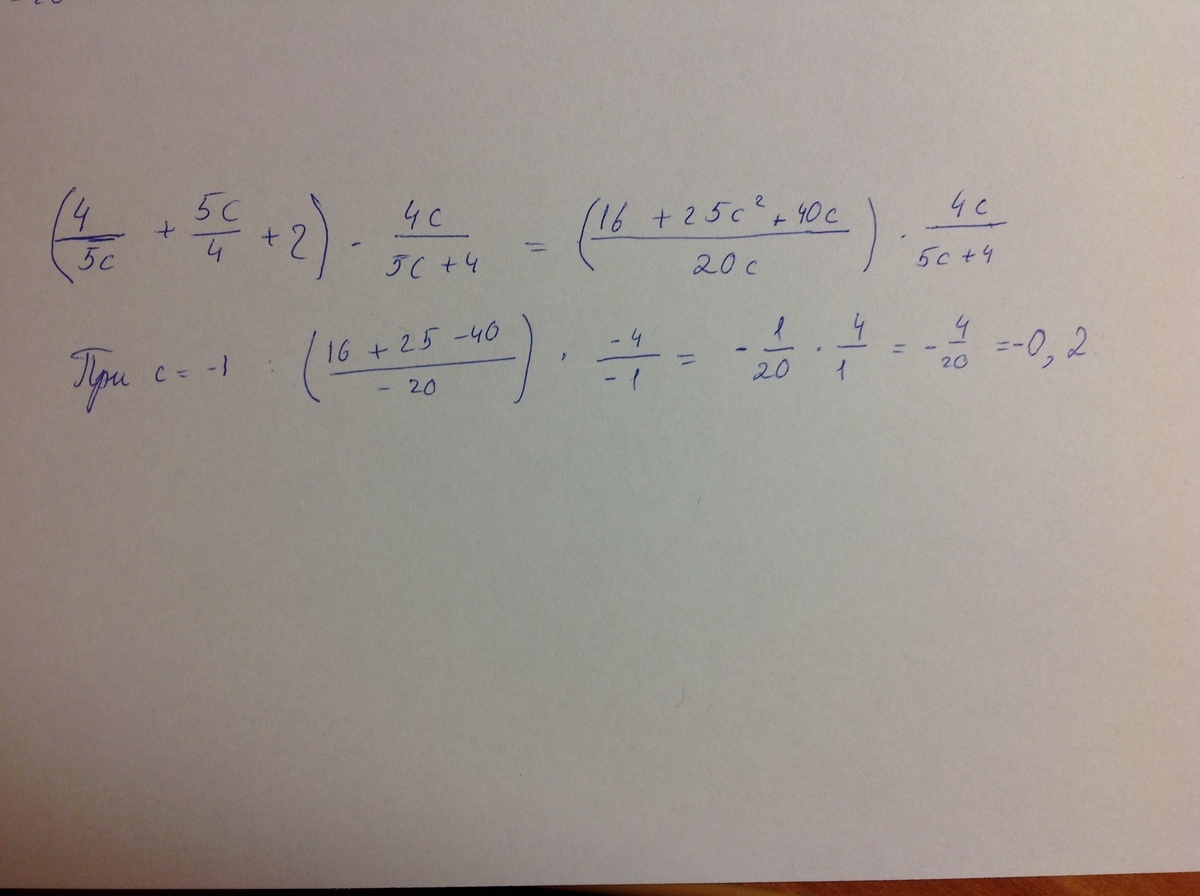 (4/5c + 5c/4 + 2) · 4c/(5c+4) = ((16 + 25c² + 40c)/20c) · 4c/(5c+4)
При c = -1 : ((16 + 25 - 40)/-20) · -4/-1 = - 1/20 · 4/1 = - 4/20 = -0,2